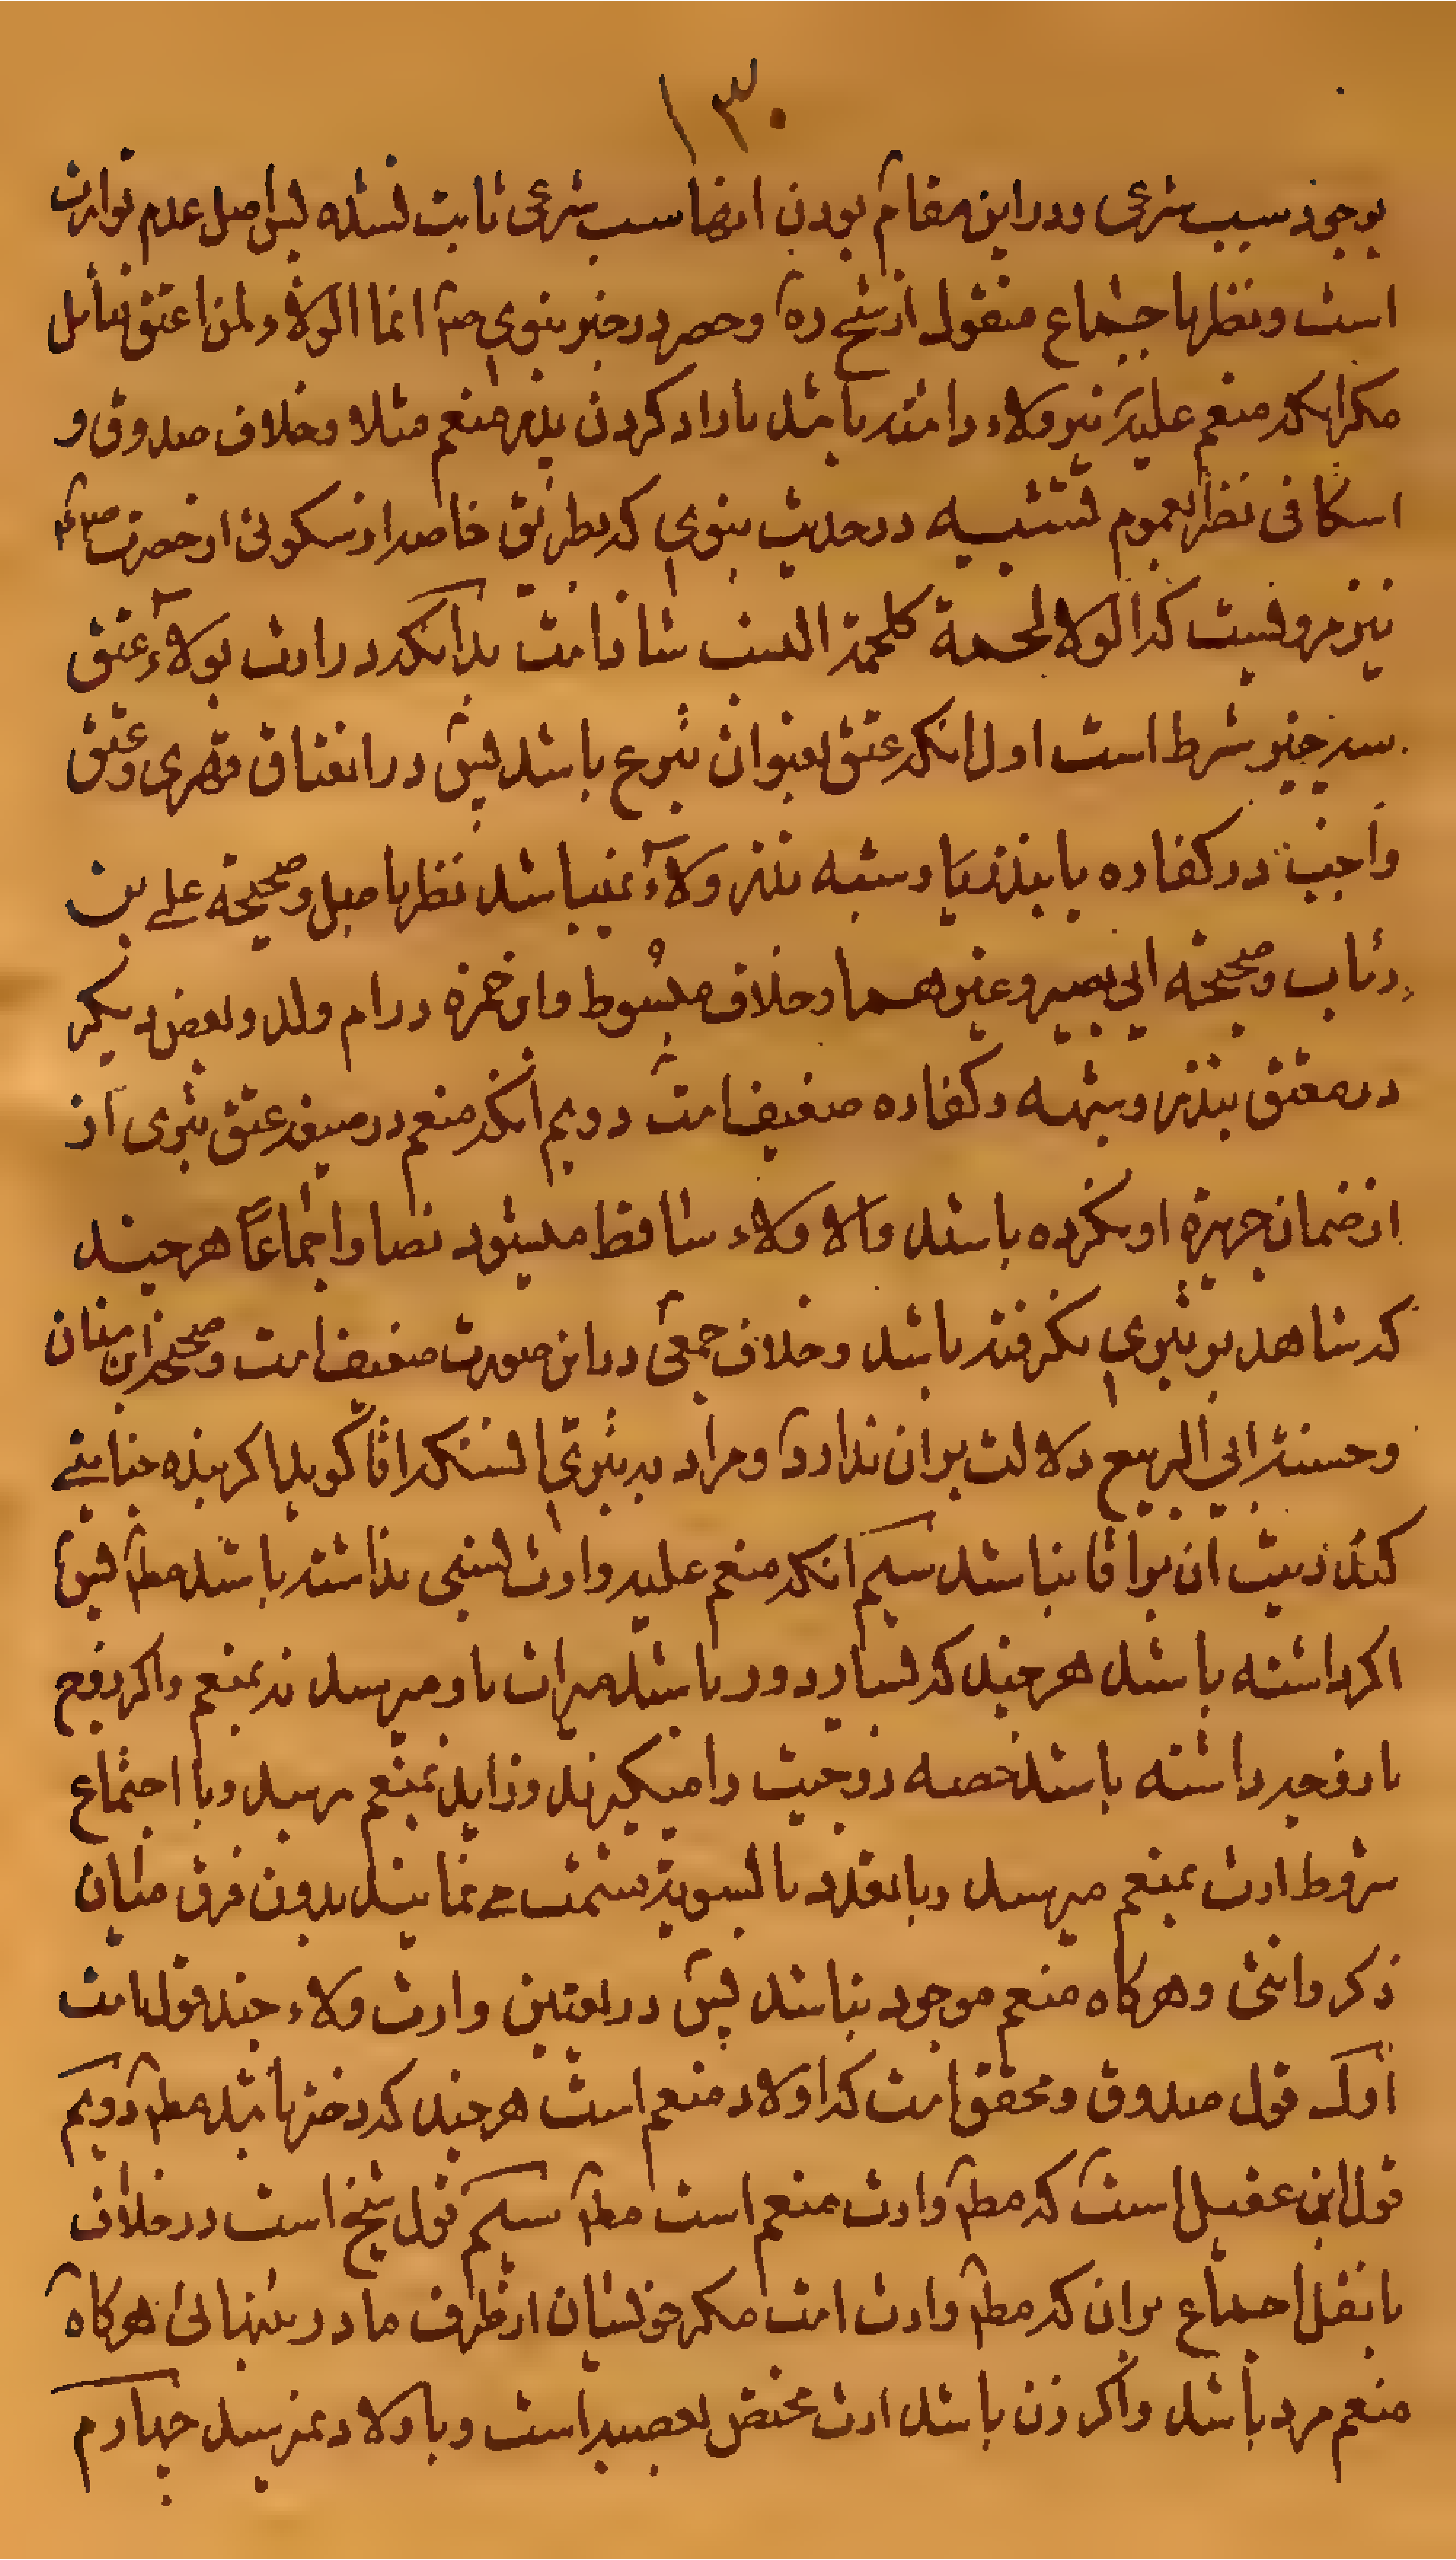 ۱۳۰
بوجود سبب شرعی و در این مقام بودن اینها سبب شرعی ثابت نشده پس اصل عدم توارث
است و نظر باجتماع منقول از شیخ ره وحصر در خبر نبوی ص انما الولاء لمن اعتق فتامل
مکر اینکه منعم علیه نیز ولاء داشته باشد بازاد کردن پدر منعم مثلا وخلاف صدوق و
اسکافی نظر بعموم تشبیه در حدیث نبوی که بطریق خاصه از سکونی از حضرت ص
نیز مرویست که الولا لحمة کلحمة النسب شاذ است بدانکه در ارث بولاء عتق
سه چیز شرط است اول انکه عتق بعنوان تبرع باشد پس در انعتاق قهری وعتق
واجب در کفاره یا بنذر یا وشبه نذر ولاء نمیباشد نظر باصل وصحیحه علی بن
رئاب وصحیحه ابی بصیر وغیر هما وخلاف مبسوط وابن حمزه در ام ولد وبعض دیکر
در معتق بنذر وشبه وکفاره ضعیف است دویم انکه منعم در صیغه عتق تبری از
از ضمان جریرة او نکرده باشد والا ولاء ساقط میشود نصا واجماعًا هر چند
که شاهد بر تبری نکرفته باشد وخلاف جمعی در این صورت ضعیف است وصحیحه ابن سنان
وحسنة ابی الربیع دلالت بر ان ندارد ومراد به تبری انستکه اقا کوید اکر بنده جنایتی
کند دیت ان بر اقا نباشد سیم انکه منعم علیه وارث نسبی نداشته باشد مطم پس
اکر داشته باشد هر چند که بسیار دور باشد میراث باو میرسد نه بمنعم واکر زوج
یا زوجه داشته باشد حصه زوجیت را میکیرند وزاید بمنعم میرسد وبا اجتماع
شروط ارث بمنعم میرسد وبا تعدد بالسویة قسمت می نمایند بدون فرق میان
ذکر وانثی وهرکاه منعم موجود نباشد پس در تعیین وارث ولاء چند قول است
اول قول صدوق ومحقق است که اولاد منعم است هر چند که دختر باشد مطم دویم
قول ابن عقیل است که مطم وارث منعم است مطم سیم قول شیخ است در خلاف
با نقل اجماع بر ان که مطم وارث است مکر خویشان از طرف مادر بتنهائی هرکاه
منعم مرد باشد واکر زن باشد ارث مختص بعصبه است وباولاد نمیرسد چهارم